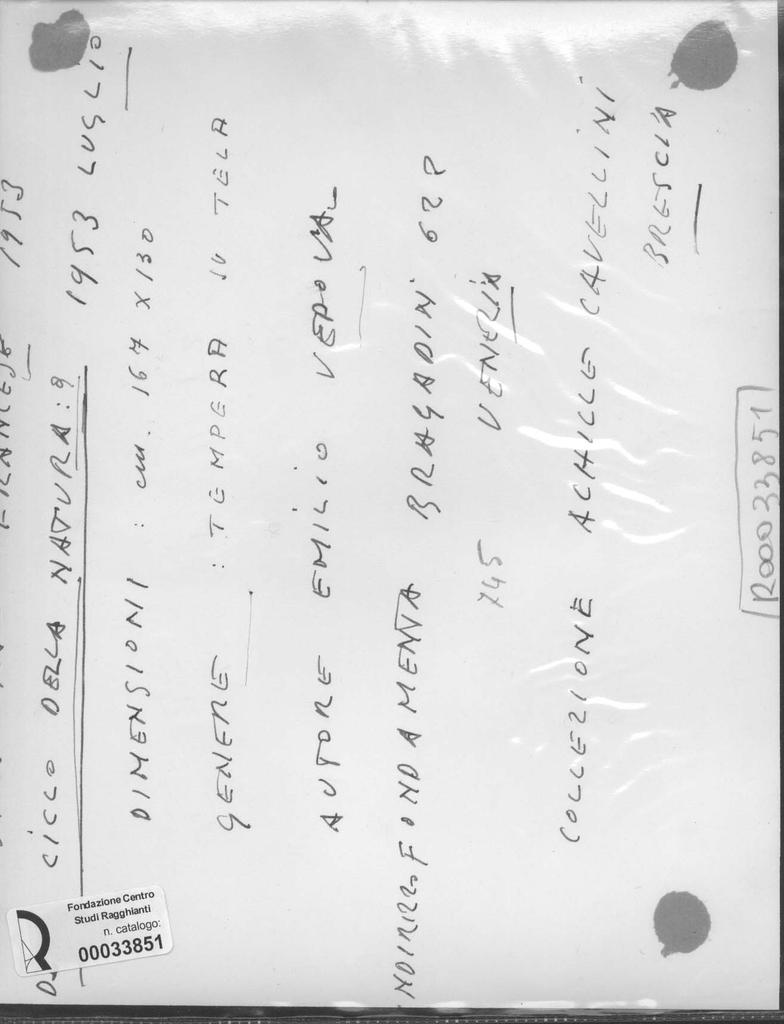 FRANCESE 1953
CICLO DELLA NATURA : 9 1953 LUGLIO
DIMENSIONI : cm. 167 X 130
GENERE : TEMPERA SU TELA
AUTORE EMILIO VEDOVA
INDIRIZZO FONDAMENTA BRAGADIN 628
VENEZIA
COLLEZIONE ACHILLE CAVELLINI
BRESCIA
R00033851
Fondazione Centro
Studi Ragghianti
n. catalogo:
00033851